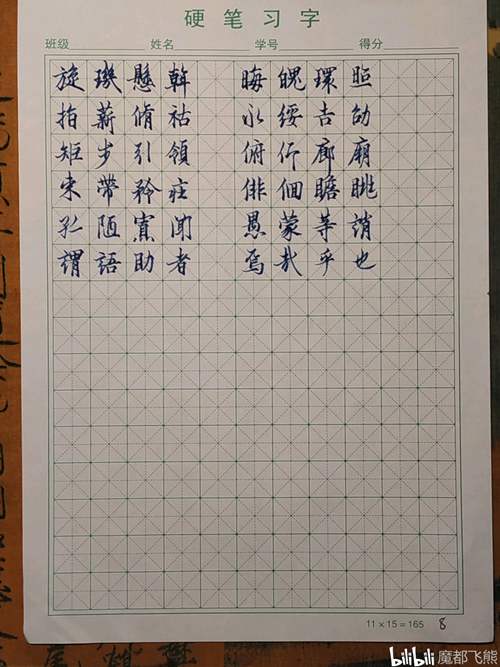 硬笔习字
班级 姓名 学号 得分
旋璣懸斡 晦魄環照
指薪脩祜 永綏吉劭
矩步引領 俯仰廊廟
束帶矜莊 俳佪瞻眺
孤陋寡聞 愚蒙等誚
謂語助者 焉哉乎也
11×15=165 8
bilibili 魔都飞熊